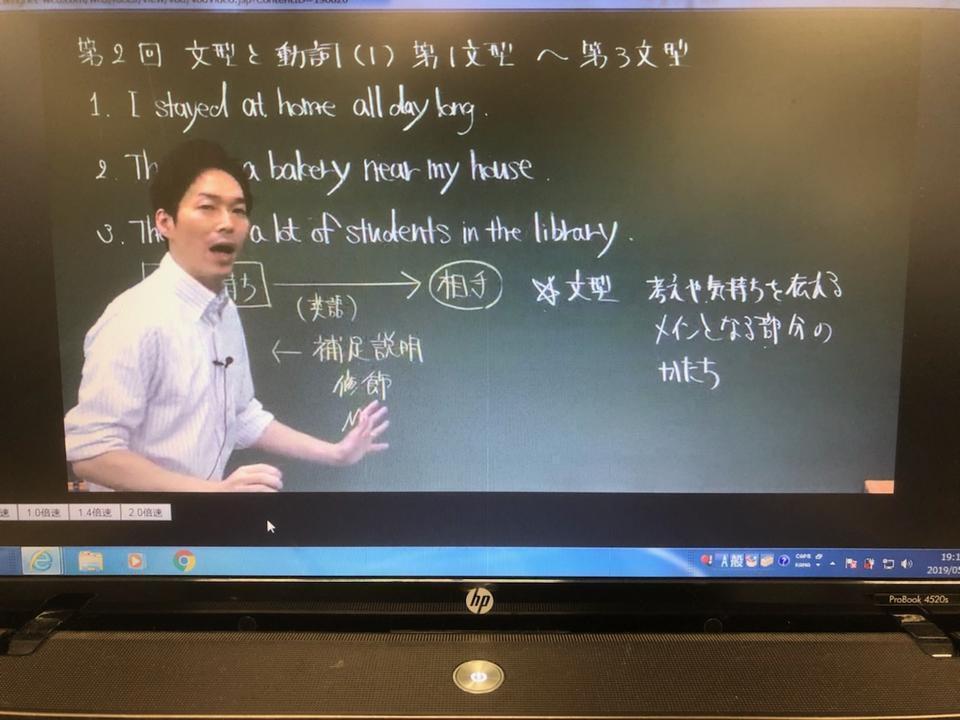 第2回 文型と動詞(1) 第1文型 〜 第3文型
1. I stayed at home all day long.
2. Th a bakery near my house.
3. The a lot of students in the library.
持ち → 相手
(英語)
☆文型 考えや気持ちを伝える
メインとなる部分の
かたち
← 補足説明
修飾
M
速 1.0倍速 1.4倍速 2.0倍速
A 般 CAPS KANA 19:1
2019/05
hp
ProBook 4520s